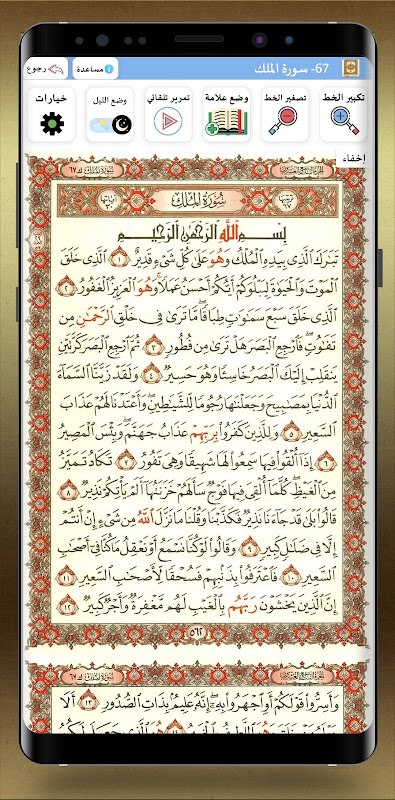 67- سورة الملك
مساعدة
رجوع
تكبير الخط
تصغير الخط
وضع علامة
تمرير تلقائي
وضع الليل
خيارات
إخفاء
سُورَةُ المُلْكِ
بِسْمِ اللَّهِ الرَّحْمَٰنِ الرَّحِيمِ
تَبَارَكَ الَّذِي بِيَدِهِ الْمُلْكُ وَهُوَ عَلَىٰ كُلِّ شَيْءٍ قَدِيرٌ ١ الَّذِي خَلَقَ
الْمَوْتَ وَالْحَيَاةَ لِيَبْلُوَكُمْ أَيُّكُمْ أَحْسَنُ عَمَلًا وَهُوَ الْعَزِيزُ الْغَفُورُ ٢
الَّذِي خَلَقَ سَبْعَ سَمَاوَاتٍ طِبَاقًا مَّا تَرَىٰ فِي خَلْقِ الرَّحْمَٰنِ مِن
تَفَاوُتٍ فَارْجِعِ الْبَصَرَ هَلْ تَرَىٰ مِن فُطُورٍ ٣ ثُمَّ ارْجِعِ الْبَصَرَ كَرَّتَيْنِ
يَنقَلِبْ إِلَيْكَ الْبَصَرُ خَاسِئًا وَهُوَ حَسِيرٌ ٤ وَلَقَدْ زَيَّنَّا السَّمَاءَ
الدُّنْيَا بِمَصَابِيحَ وَجَعَلْنَاهَا رُجُومًا لِّلشَّيَاطِينِ وَأَعْتَدْنَا لَهُمْ عَذَابَ
السَّعِيرِ ٥ وَلِلَّذِينَ كَفَرُوا بِرَبِّهِمْ عَذَابُ جَهَنَّمَ وَبِئْسَ الْمَصِيرُ
٦ إِذَا أُلْقُوا فِيهَا سَمِعُوا لَهَا شَهِيقًا وَهِيَ تَفُورُ ٧ تَكَادُ تَمَيَّزُ
مِنَ الْغَيْظِ كُلَّمَا أُلْقِيَ فِيهَا فَوْجٌ سَأَلَهُمْ خَزَنَتُهَا أَلَمْ يَأْتِكُمْ نَذِيرٌ ٨
قَالُوا بَلَىٰ قَدْ جَاءَنَا نَذِيرٌ فَكَذَّبْنَا وَقُلْنَا مَا نَزَّلَ اللَّهُ مِن شَيْءٍ إِنْ أَنتُمْ
إِلَّا فِي ضَلَالٍ كَبِيرٍ ٩ وَقَالُوا لَوْ كُنَّا نَسْمَعُ أَوْ نَعْقِلُ مَا كُنَّا فِي أَصْحَابِ
السَّعِيرِ ١٠ فَاعْتَرَفُوا بِذَنبِهِمْ فَسُحْقًا لِّأَصْحَابِ السَّعِيرِ ١١
إِنَّ الَّذِينَ يَخْشَوْنَ رَبَّهُم بِالْغَيْبِ لَهُم مَّغْفِرَةٌ وَأَجْرٌ كَبِيرٌ ١٢
٥٦٢
وَأَسِرُّوا قَوْلَكُمْ أَوِ اجْهَرُوا بِهِ إِنَّهُ عَلِيمٌ بِذَاتِ الصُّدُورِ ١٣ أَلَا